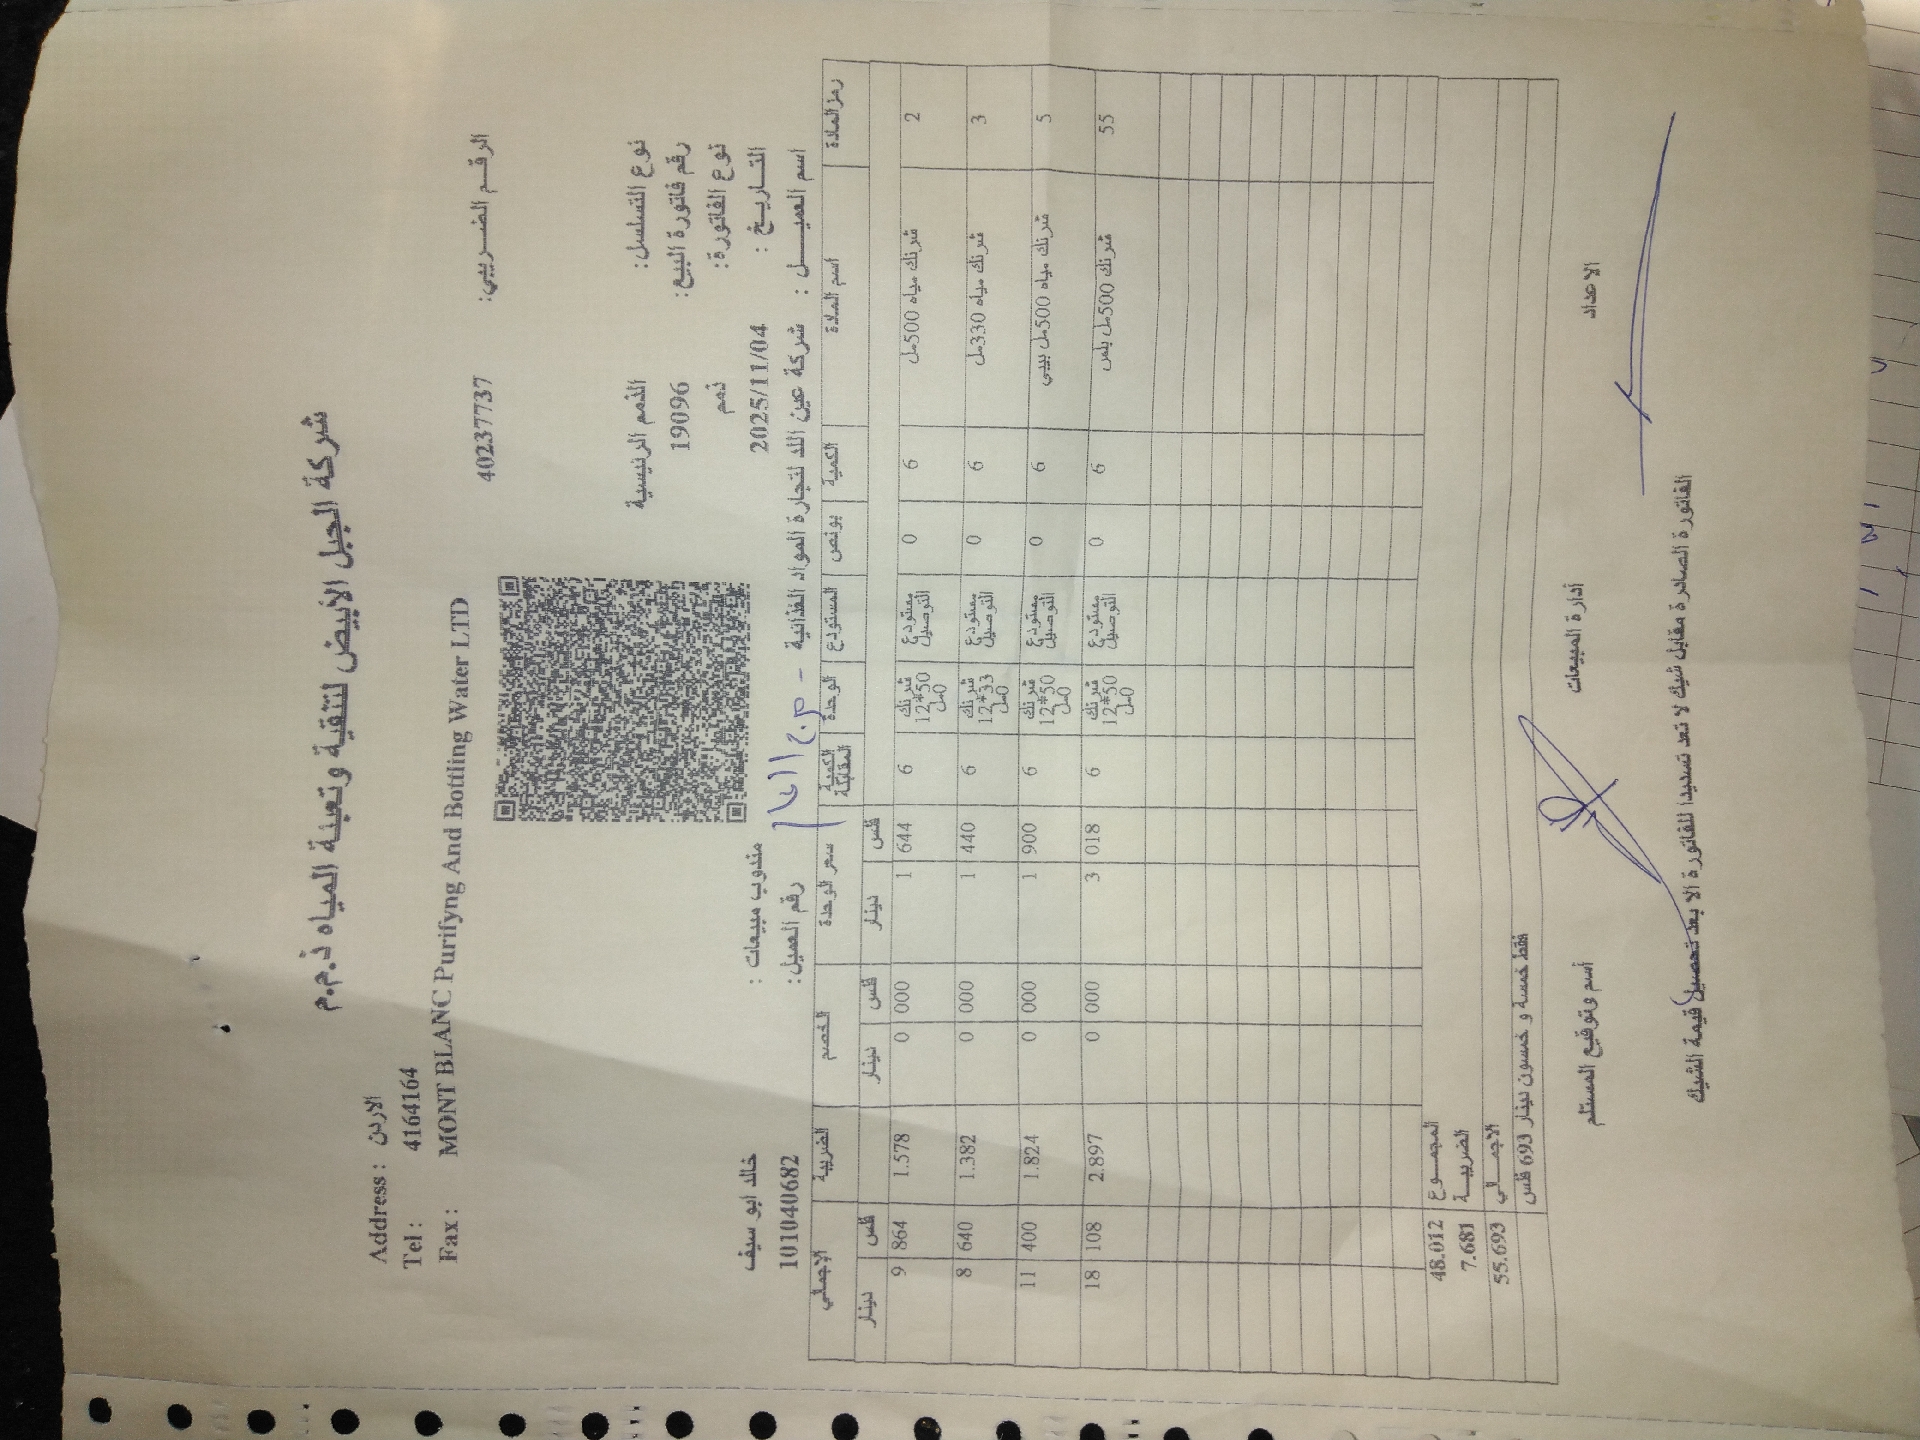 شركة الجبل الأبيض لتنقية وتعبئة المياه ذ.م.م
Address : الاردن
Tel : 4164164
Fax : MONT BLANC Purifyng And Bottling Water LTD
الرقم الضريبي: 40237737
نوع التسلسل: الذمم الرئيسية
رقم فاتورة البيع: 19096
نوع الفاتورة: ذمم
التاريخ : 2025/11/04
مندوب مبيعات : خالد ابو سيف
اسم العميل : شركة عين اللد لتجارة المواد الغذائية -
رقم العميل: 101040682
رمز المادة اسم المادة الكمية بونص المستودع الوحدة الكمية المقابلة سعر الوحدة الخصم الضريبة الإجمالي
دينار فلس دينار فلس دينار فلس
2 شرنك مياه 500مل 6 0 مستودع التوصيل شرنك 12*500مل 6 1 644 0 000 1.578 9 864
3 شرنك مياه 330مل 6 0 مستودع التوصيل شرنك 12*330مل 6 1 440 0 000 1.382 8 640
5 شرنك مياه 500مل بيبي 6 0 مستودع التوصيل شرنك 12*500مل 6 1 900 0 000 1.824 11 400
55 شرنك 500مل بلس 6 0 مستودع التوصيل شرنك 12*500مل 6 3 018 0 000 2.897 18 108
المجموع 48.012
الضريبة 7.681
الاجمالي 55.693
فقط خمسة و خمسون دينار 693 فلس
الاعداد أدارة المبيعات أسم وتوقيع المستلم
الفاتورة الصادرة مقابل شيك لا تعد تسديدا للفاتورة الا بعد تحصيل قيمة الشيك